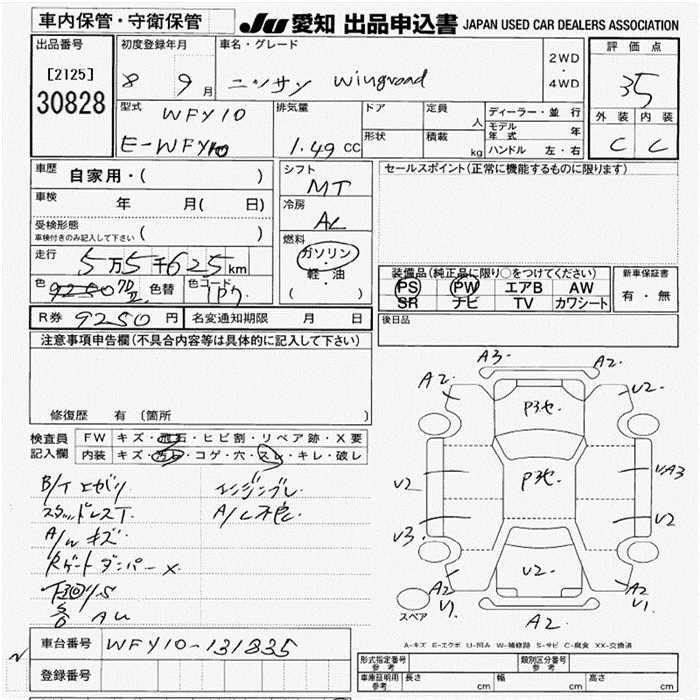 車内保管・守衛保管
JU 愛知 出品申込書 JAPAN USED CAR DEALERS ASSOCIATION
出品番号
[2125]
30828
初度登録年月
8 9月
車名・グレード
ニッサン Wingroad
2WD
・
4WD
評価点
35
外装 内装
C C
型式
WFY10
E-WFY10
排気量
1.49 CC
ドア
定員 人
形状
積載 kg
ディーラー・並行
モデル年式 年
ハンドル 左・右
車歴
自家用・( )
車検
年 月( 日)
受検形態
車検付きのみ記入して下さい ( )
走行
5万5千625km
色
色替
色コード
シフト
MT
冷房
AC
燃料
ガソリン
・
軽・油
( )
セールスポイント(正常に機能するものに限ります)
装備品(純正品に限り○をつけてください)
PS PW エアB AW
SR ナビ TV カワシート
新車保証書
有・無
R券 9250 円
名変通知期限 月 日
後日品
注意事項申告欄(不具合内容等は具体的に記入して下さい)
修復歴 有 (箇所 )
検査員
記入欄
FW キズ・飛石・ヒビ割・リペア跡・X要
内装 キズ・汚れ・コゲ・穴・スレ・キレ・破レ
スタッドレスT
A/W キズ
Rゲートダンパー×
A/C不良
A3
A2
A2
A2
U2
U2
U3
UA3
U2
U2
A2
U1
A2
U1
A2
スペア
A-キズ E-エクボ U-凹み W-補修跡 S-サビ C-腐食 XX-交換済
車台番号 WFY10-131835
登録番号
形式指定番号
参考
類別区分番号
参考
車庫証明用
参考
長さ cm 幅 cm 高さ cm